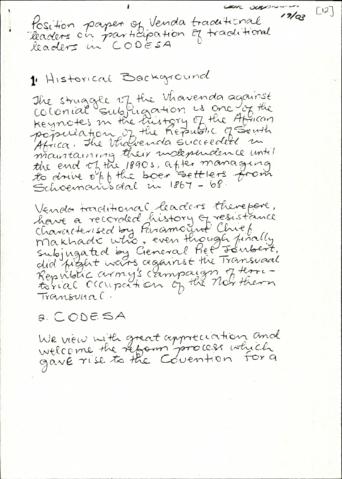 19/03 [12]
Position paper of Venda traditional
leaders on participation of traditional
leaders in CODESA
1. Historical Background
The struggle of the Vhavenda against
colonial subjugation is one of the
keynotes in the history of the African
population of the Republic of South
Africa. The Vhavenda succeeded in
maintaining their independence until
the end of the 1890s, after managing
to drive off the boer settlers from
Schoemansdal in 1867-68.
Venda traditional leaders therefore,
have a recorded history of resistance
characterised by Paramount Chief
Makhado who, even though finally
subjugated by General Piet Joubert,
did fight wars against the Transvaal
Republic army's campaign of terri-
torial occupation of the Northern
Transvaal.
2. CODESA
We view with great appreciation and
welcome the reform process which
gave rise to the Covention for a